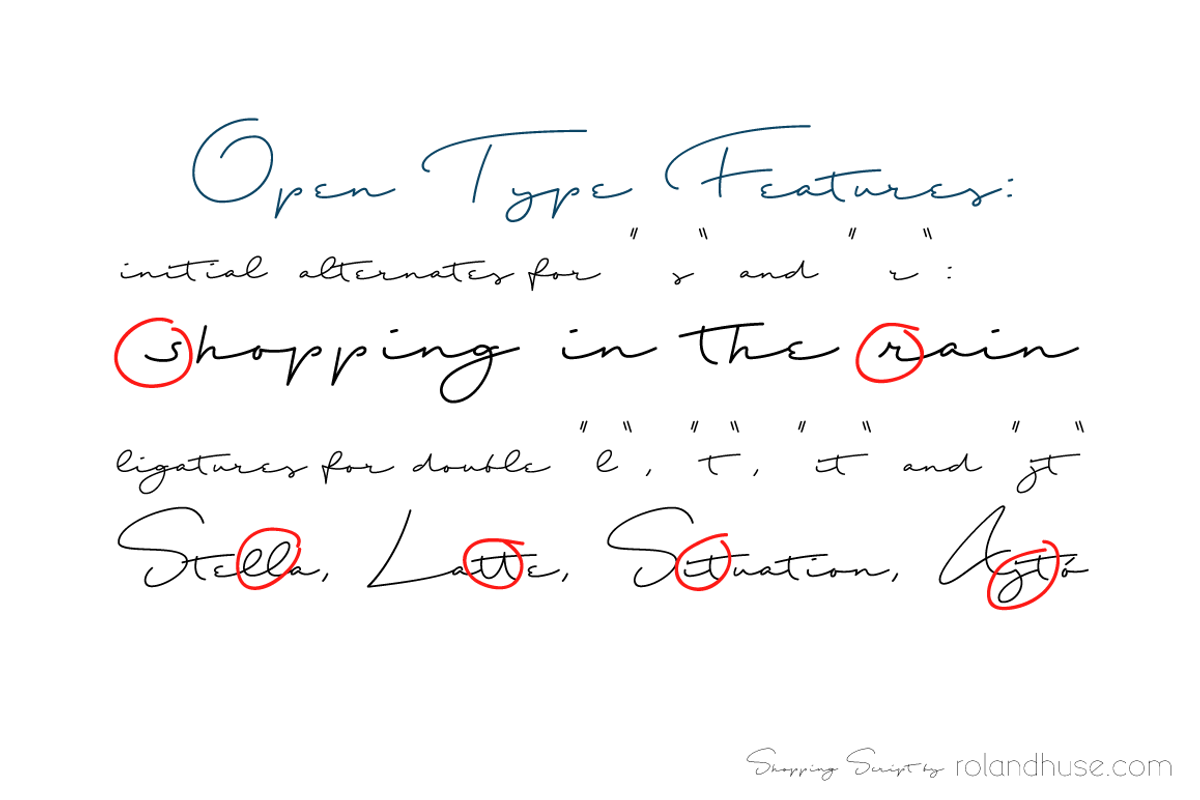 Open Type Features:
initial alternates for "s" and "r":
shopping in the rain
ligatures for double "l", "t", "it" and "jt"
Stella, Latte, Situation, Ajtó
Shopping Script by rolandhuse.com